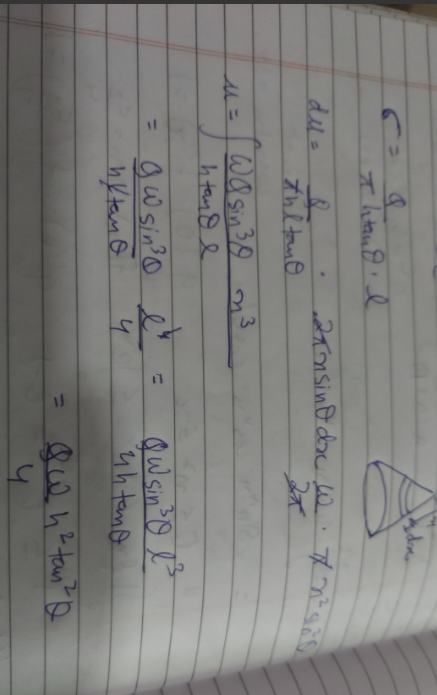 σ = Q / π h tanθ . l
dμ = Q / π h l tanθ . 2π x sinθ dx . ω / 2π . π x² sin²θ
μ = ∫ ωQ sin³θ x³ / h tanθ l
= Qω sin³θ / h l tanθ l⁴ / 4 = Qω sin³θ l³ / 4h tanθ
= Qω h² tan²θ / 4